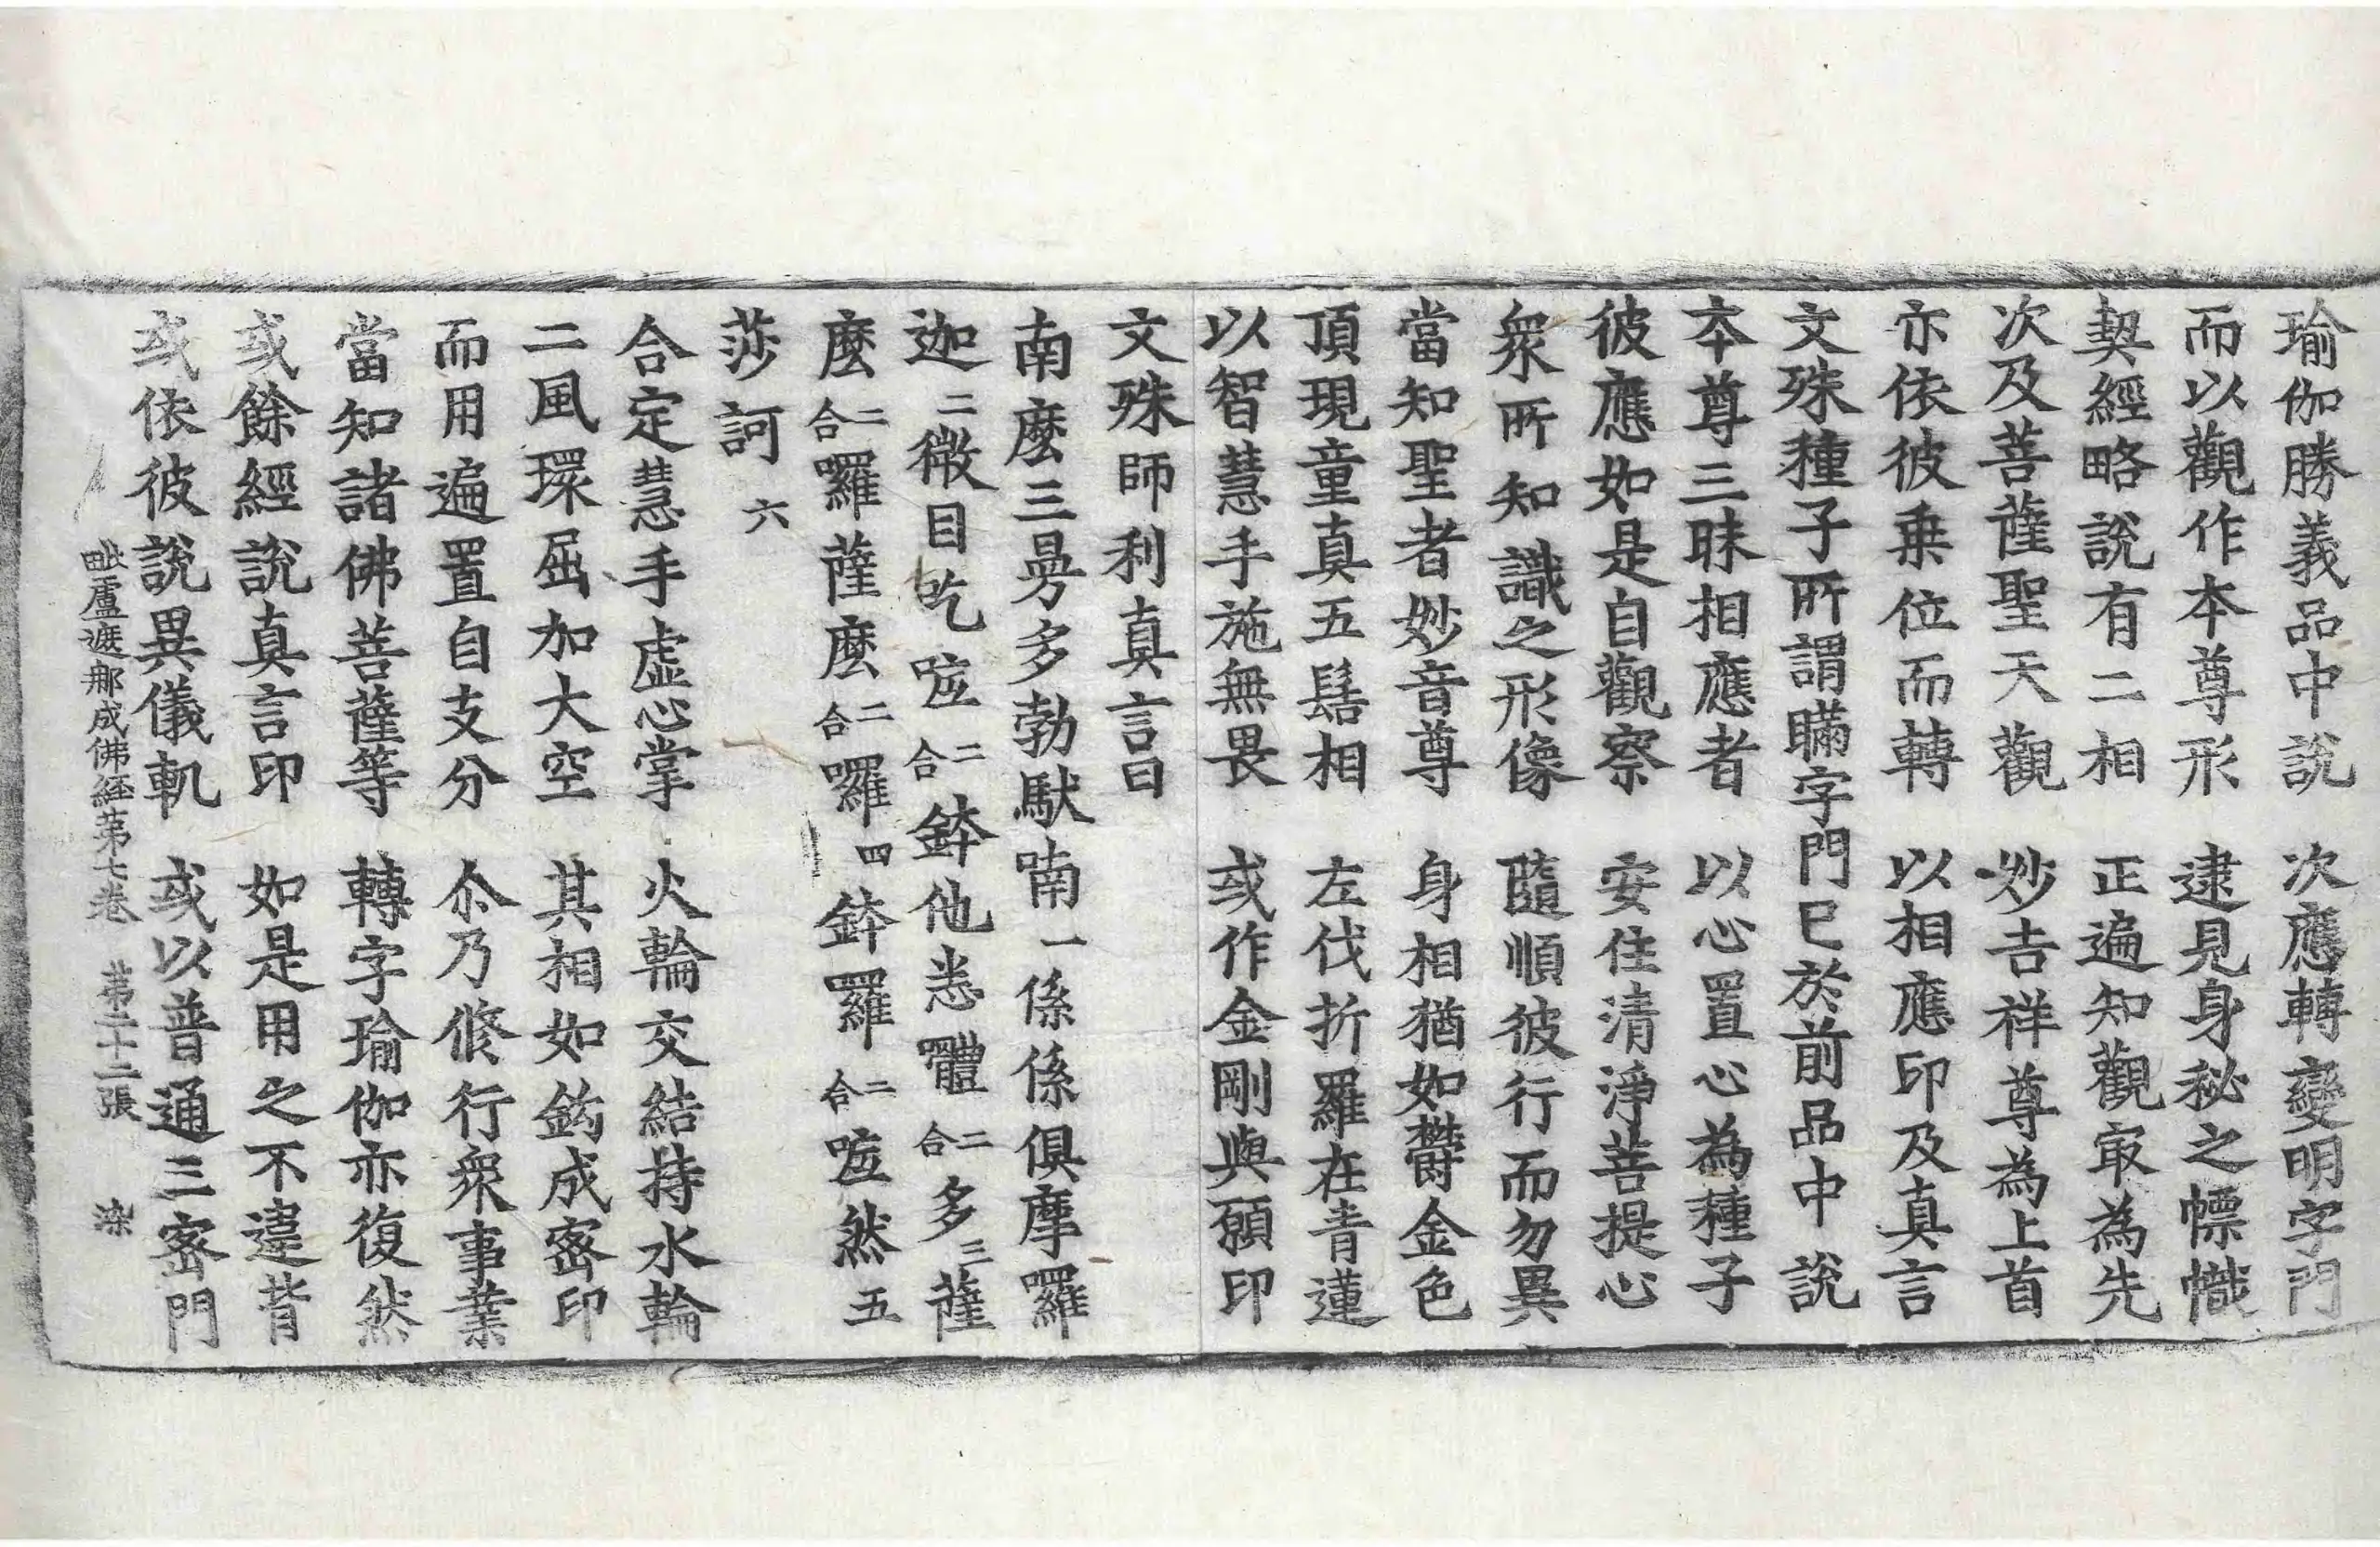 瑜伽勝義品中說　次應轉變明字門
而以觀作本尊形　逮見身秘之幖幟
契經略說有二相　正遍知觀㝡為先
次及菩薩聖天觀　妙吉祥尊為上首
亦依彼乗位而轉　以相應印及真言
文殊種子所謂瞞字門已於前品中說
本尊三昧相應者　以心置心為種子
彼應如是自觀察　安住清淨菩提心
衆所知識之形像　隨順彼行而勿異
當知聖者妙音尊　身相猶如欝金色
頂現童真五髻相　左伐折羅在青蓮
以智慧手施無畏　或作金剛與願印
文殊師利真言曰
南麼三曼多勃馱喃一係係俱摩囉
迦二微目吃㘑二合鉢他悉體二合多三薩
麼二合囉薩麼二合囉四鉢囉二合㘑然五
莎訶六
合定慧手虛心掌　火輪交結持水輪
二風環屈加大空　其相如鈎成密印
而用遍置自支分　尒乃修行衆事業
當知諸佛菩薩等　轉字瑜伽亦復然
或餘經說真言印　如是用之不違背
或依彼說異儀軌　或以普通三密門
毗盧遮那成佛經第七卷　第二十二張　染